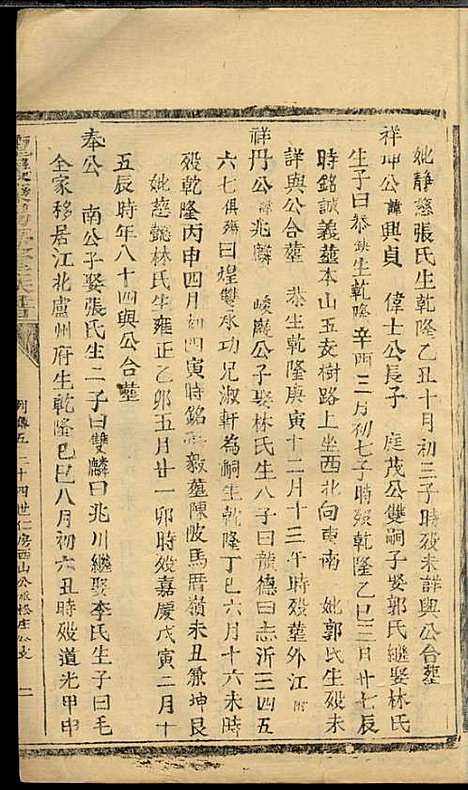 妣靜慈張氏生乾隆乙丑十月初三子時殁未詳與公合墓
祥坤公諱興貞 偉士公長子 庭茂公雙嗣子娶郭氏繼娶林氏
生子曰恭 生乾隆辛酉三月初七子時殁乾隆乙巳三月廿七辰
時銘誠義墓本山五麦樹路上坐西北向東南 妣郭氏生殁未
詳與公合墓 恭生乾隆庚寅十二月十三午時殁墓外江
祥丹公諱兆麟 峻巖公子娶林氏生八子曰龍德曰志沂三四五
六七俱殤八曰煌豐承功兄淑軒為嗣生乾隆丁巳六月十六未時
殁乾隆丙申四月初四寅時銘 毅墓陳陂馬厝嶺未丑兼坤艮
妣慈懿林氏生雍正乙卯五月廿一卯時殁嘉慶戊寅二月十
五辰時年八十四與公合墓
奉公 南公子娶張氏生二子曰雙麟曰兆川繼娶李氏生子曰毛
全家移居江北盧州府生乾隆己巳八月初六丑時殁道光甲申
列傳五 二十四世仁房西山公派松庄公支 二